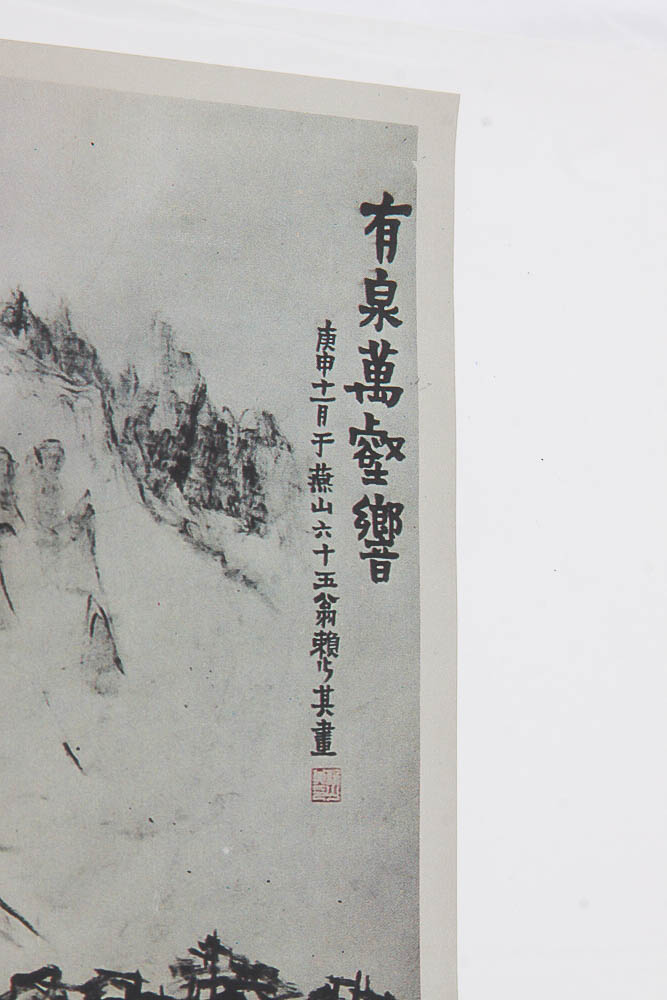 有泉萬壑響
庚申十一月于燕山六十五翁賴少其畫